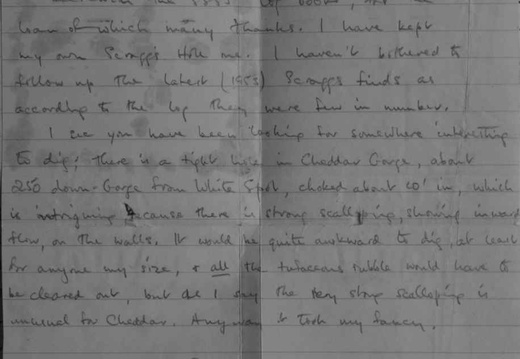 loan of which many thanks. I have kept
my own Scraggs Hole me. I haven't bothered to
follow up the latest (1953) Scraggs finds as
according to the log they were few in number.
I see you have been looking for somewhere interesting
to dig; there is a tight hole in Cheddar Gorge, about
250 down-Gorge from White Spot, choked about 20' in, which
is intriguing because there is strong scalloping, showing inward
flow, on the walls. It would be quite awkward to dig, at least
for anyone my size, & all the tufaceous rubble would have to
be cleared out, but as I say the very strong scalloping is
unusual for Cheddar. Anyway it took my fancy.